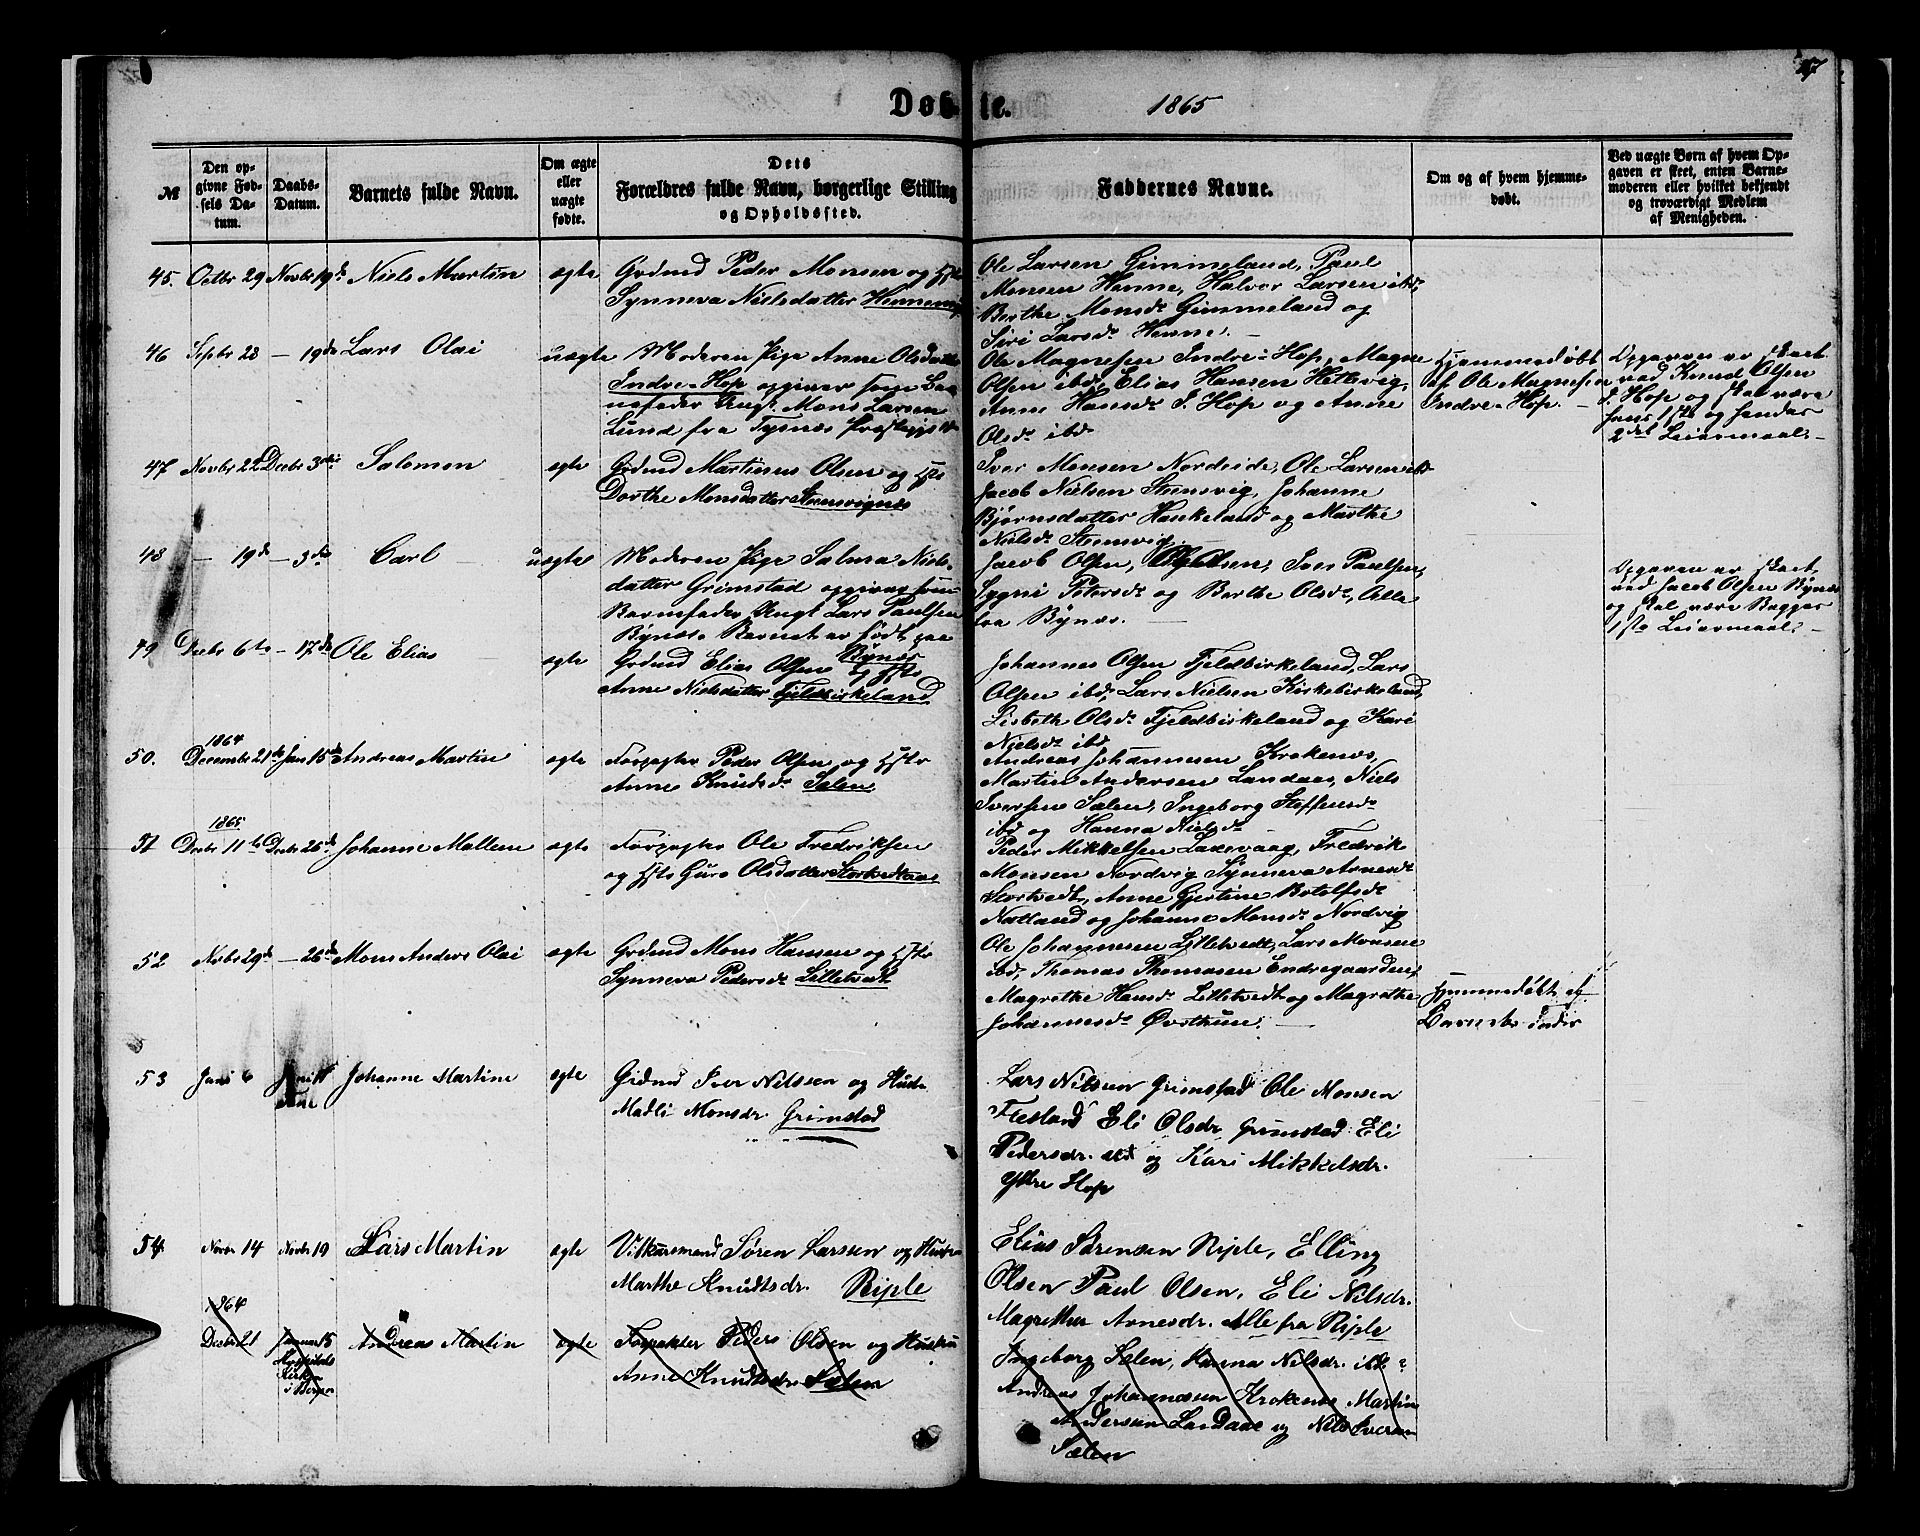 17
Døbte. 1865
№
Den op-
givne Fød-
sels Da-
tum.
Daabs-
Datum.
Barnets fulde Navn.
Om ægte
eller
uægte
fødte.
Dets
Forældres fulde Navn, borgerlige Stilling
og Opholdssted.
Faddernes Navne.
Om og af hvem hjemme-
døbt.
Ved uægte Børn af hvem Op-
gaven er skeet, enten Barne-
moderen eller hvilket bekjendt
og troværdigt Medlem
af Menigheden.
45. Octbr 29 Novbr 19de Niels Martin ægte Grdmd Peder Monsen og Hstr
Synneva Nielsdatter Henne
Ole Larsen Gimmeland, Paul
Monsen Henne, Halvor Larsen ibd,
Berthe Monsdr Gimmeland og
Siri Larsdr Henne. —
46 Septbr 28 — 19de Lars Olai uægte Moderen Pige Anne Olsdatter
Indre-Hop opgiver som Bar-
nefader Ungk. Mons Larsen
Lund fra Tysnæs Præstegj.
Ole Magnesen Indre-Hop, Magne
Olsen ibd, Elias Hansen Hettevig,
Anne Hansdr I. Hop og Anne
Olsdr ibd
Hjemmedøbt
af Ole Magnesen
Indre-Hop. —
Opgaven er skeet
ved Knud Olsen
I. Hop og skal være
hans 1ste og hendes
2det Leiermaal. —
47 Novbr 22de Decbr 3die Salomon ægte Grdmd Martinus Olsen og Hstr
Dorthe Monsdatter Steensvignes
Iver Monsen Nordeide, Ole Larsen ibd
Jacob Nielsen Steensvig, Johanne
Bjørnsdatter Haukeland og Marthe
Nielsdr Steensvig. —
48 — 19de — 3die Carl uægte Moderen Pige Salmia Niels-
datter Grimstad opgiver som
Barnefader Ungk Lars Paulsen
Bynæs. Barnet er født paa
Bynæs
Jacob Olsen, Ole Olsen, Iver Paulsen,
Sygni Petersdr og Berthe Olsdr, Alle
fra Bynæs. —
Opgaven er skeet
ved Jacob Olsen Bynæs
og skal være Begges
1ste Leiermaal. —
49 Decbr 6te — 17de Ole Elias ægte Grdmd Elias Olsen og Hstr
Anne Nielsdatter Fjeldbirkeland
Johannes Olsen Fjeldbirkeland, Lars
Olsen ibd, Lars Nielsen Kirkebirkeland,
Lisbeth Olsdr Fjeldbirkeland og Kari
Nielsdr ibd
50. 1864
December 21de Jan 15de Andreas Martin ægte Forpagter Peder Olsen og Hstr
Anne Knudsdr Sælen
Andreas Johannesen Krokenæs,
Martin Andersen Landaas, Niels
Iversen Sælen, Ingeborg Steffensdr
ibd og Hanna Nielsdr
1865
51 Decbr 11te Decbr 26de Johanne Mallene ægte Forpagter Ole Fredriksen
og Hstr Guro Olsdatter Stortvedtaas
Peder Mikkelsen Laxevaag, Fredrik
Monsen Nordvig Synneva Arnesdr
Stortvedt, Anne Gjertine Botolfsdr
Natland og Johanne Monsdr Nordvig
52 Novbr 29de — 26de Mons Anders Olai ægte Grdmd Mons Hansen og Hstr
Synneva Pedersdr Lilletvedt
Ole Johannesen Lilletvedt, Lars Monsen
ibd, Thomas Thomasen Endregaarden,
Magrethe Hansdr Lilletvedt og Magrethe
Johannesdr Øvsthun. —
Hjemmedøbt af
Barnets Fader
53 Juni 6 Johanne Martine ægte Grdmd Iver Nilssen og Hustr
Madli Monsdr. Grimstad
Lars Nilsen Grimstad Ole Monsen
Flesland Eli Olsdr Grimstad Eli
Pedersdr. ibd og Kari Mikkelsdr.
Ytre Hop
54 Novbr 14 Novbr 19 Lars Martin ægte Vilkaarsmand Søren Larssen og Hustru
Marthe Knudtsdr. Riple
Elias Sørensen Riple, Elling
Olsen Paul Olsen, Eli Nilsdr.
Magrethe Arnesdr. Alle fra Riple
1864
Decbr 21 Januar 15
Hospitals
Kirken
i Bergen
Andreas Martin ægte Forpakter Peder Olsen og Hustru
Anne Knudtsdr Sælen
Ingeborg Sælen, Hanna Nilsdr. ibd
Andreas Johannesen Krokenæs Martin
Andersen Landaas og Nils Iversen
Sælen